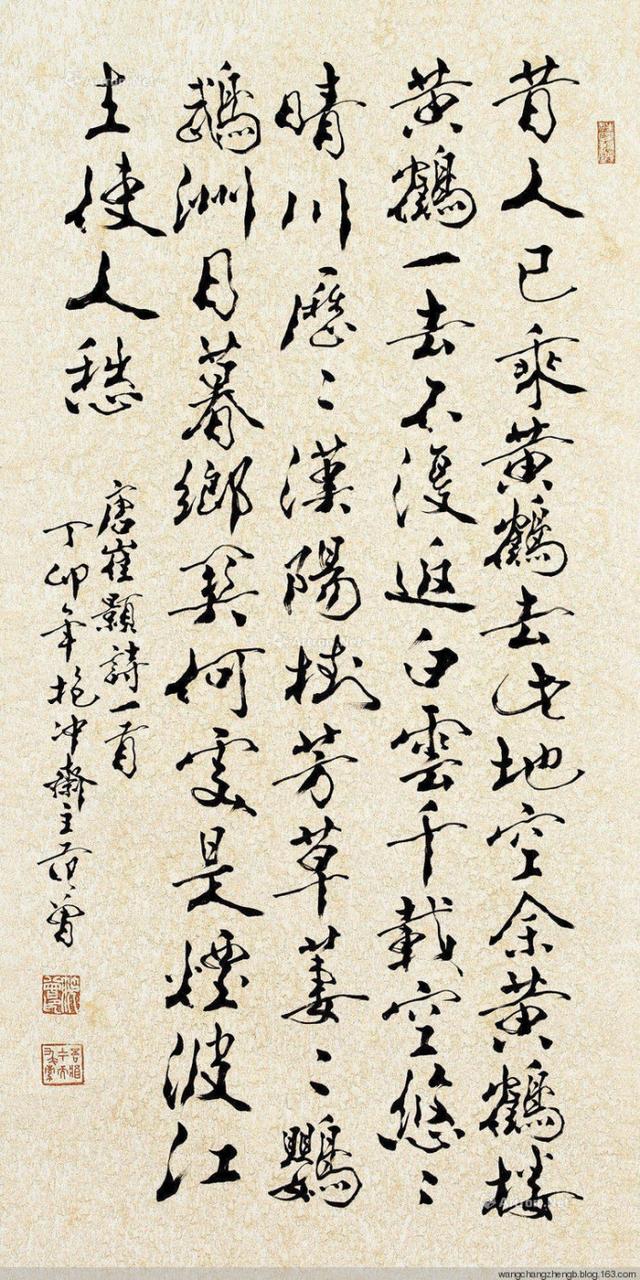 昔人已乘黄鶴去此地空余黄鶴楼
黄鶴一去不復返白雲千載空悠〻
晴川歷〻漢陽樹芳草萋〻鸚
鵡洲日暮鄉関何處是煙波江
上使人愁
唐崔顥詩一首
丁卯年抱冲齋主范曾
wangchangzhengb.blog.163.com